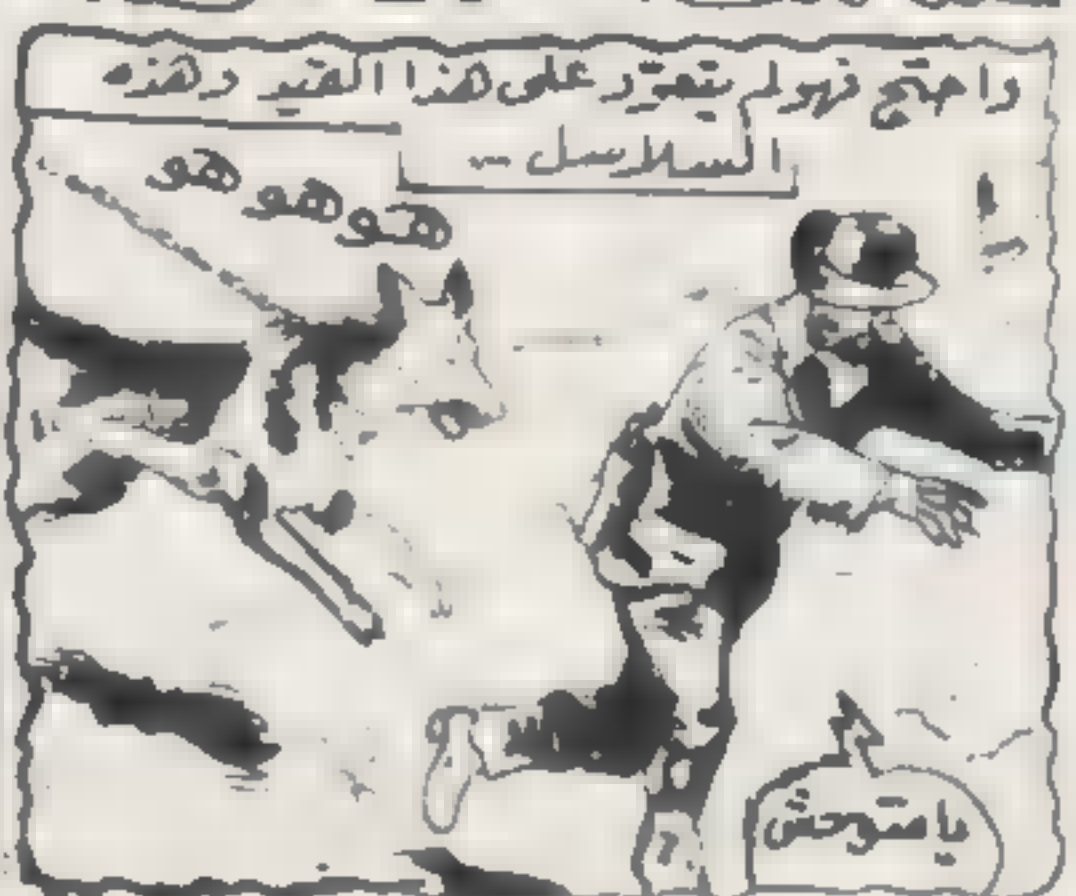 واحتج فهو لم يتعوّد على هذا القيد وهذه
السلاسل --
هو هو هو
يا متوحش